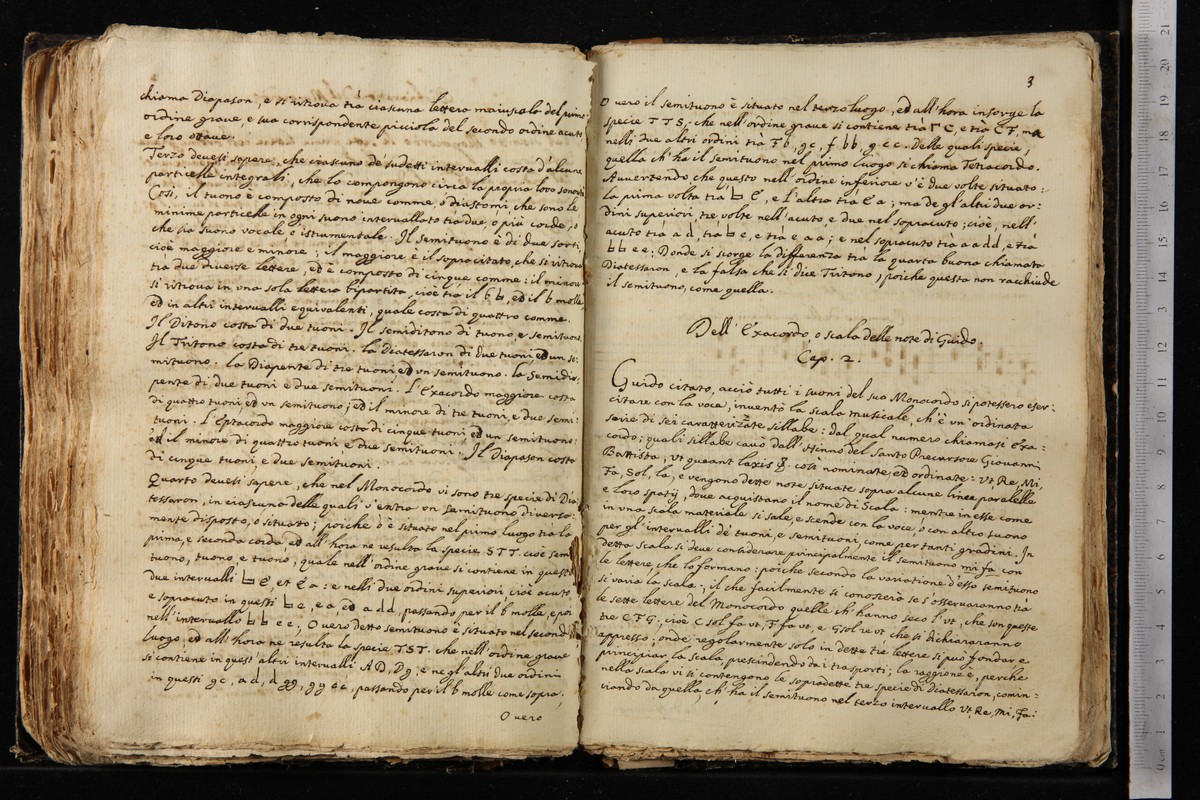 chiama Diapason, e si ritroua trà ciascuna lettera maiuscola del primo
ordine graue, e sua corrispondente picciola del secondo ordine acuto
e loro ottaue.
Terzo deuesi sapere, che ciascuno de sudetti interualli costa d'alcune
particelle integrali, che lo compongono circa la propria loro sonorità
Così, il tuono è composto di noue comme, ò diastomi che sono le
minime particelle in ogni suono interuallato trà due, ò più corde, ò
che sia suono vocale ò istrumentale. Il semituono è di due sorti,
cioè maggiore e minore; il maggiore è il sopracitato, che si ritroua
trà due diuerse lettere, ed è composto di cinque comme: il minore
si ritroua in vna sola lettera bipartita, cioè trà il b ♮, ed il b molle,
ed in altri interualli equiualenti, quale costa di quattro comme.
Il Ditono costa di due tuoni. Il semiditono di tuono, e semituono.
Il Tritono costa di tre tuoni. la Diatessaron di due tuoni ed un se-
mituono. la Diapente di tre tuoni ed vn semituono. la Semidia-
pente di due tuoni e due semituoni. L'Exacordo maggiore costa
di quattro tuoni ed vn semituono; ed il minore di tre tuoni, e due semi-
tuoni. L'Eptacordo maggiore costa di cinque tuoni ed un semituono:
ed il minore di quattro tuoni e due semituoni. Il Diapason costa
di cinque tuoni e due semituoni.
Quarto deuesi sapere, che nel Monocordo vi sono tre specie di Dia-
tessaron, in ciascuno delle quali v'entra vn semituono diuerso-
mente disposto, o situatto; poiche ò è situato nel primo luogo trà la
prima, e seconda corda ed all'hora ne resulta la specie, STT. cioè semi
tuono, tuono, e tuono; quale nell'ordine graue si contiene in questi
due interualli ♮ E, et E a: e nelli due ordini superiori, cioè acuto,
e sopracuto in questi ♮ e, e a, ed a d d, passando per il b molle, e poi
nell'interuallo ♮ ♮ e e; Ouero detto semituono è situato nel secondo
luogo ed all'hora ne resulta la specie TST. che nell'ordine graue
si contiene in quest'altri interualli AD, Dg; e negl'altri due ordini
in questi gc, ad, d gg, gg cc, passando per il b molle come sopra;
Ouero
3
Ouero il semituono è situato nel terzo luogo, ed all'hora insorge la
specie TTS; che nell'ordine graue si contiene trà Γ C, e trà CF, ma
nelli due altri ordini trà F b, gc, f bb, g cc. Delle quali specie,
quella ch'ha il semituono nel primo luogo si chiama Tetracordo.
Auuertendo che questo nell'ordine inferiore v'è due volte situato:
la prima volta trà ♮ E, e l'altro trà E a; ma de gl'altri due or-
dini superiori, tre volte nell'acuto e due nel sopracuto; cioè, nell'
acuto trà a d, trà ♮ e, e trà e a a; e nel sopracuto trà a a d d, e trà
♮ ♮ e e; Donde si scorge la differenza trà la quarta buona chiamata
Diatessaron, e la falsa che si dice Tritono; poiche questa non racchiude
il semituono, come quella.
Dell'Exacordo, o scala delle note di Guido.
Cap. 2.
Guido citato, acciò tutti i suoni del suo Monocordo si potessero eser-
citare con la voce, inuentò la scala musicale, ch'è vn'ordinata
serie di sei caratterizate sillabe: dal qual numero chiamasi Exa-
cordo; quali sillabe cauò dall'Hinno del Santo Precursore Giouanni
Battista, Vt queant laxis &. così nominate, ed ordinate: Vt, Re, Mi,
Fa, Sol, la; e vengono dette note situate sopra alcune linee paralelle
e loro spatij, doue acquistano il nome di Scala: mentre in esse come
in vna scala materiale si sale, e scende con la voce, ò con altro suono
per gl'interualli dè tuoni, e semituoni, come per tanti gradini. In
detta scala si deue considerare principalmente il semituono mi fa con
le lettere, che lo formano: poiche secondo la variatione d'esso semituono
si varia la scala; il che facilmente si conoscerà se s'osseruaranno trà
le sette lettere del Monocordo quelle ch'hanno seco l'vt, che son queste
tre C F G: cioè C sol fa vt, F fa vt, e Gsol re vt che si dichiararanno
appresso; onde regolarmente solo in dette trè lettere si può fondar e
principiar la scala, prescindendo dai trasporti; la raggione è, perche
nella scala vi si contengono le sopradette tre specie di Diatessaron, comin-
ciando da quella, ch'ha il semituono nel terzo interuallo Vt, Re, Mi, Fa: